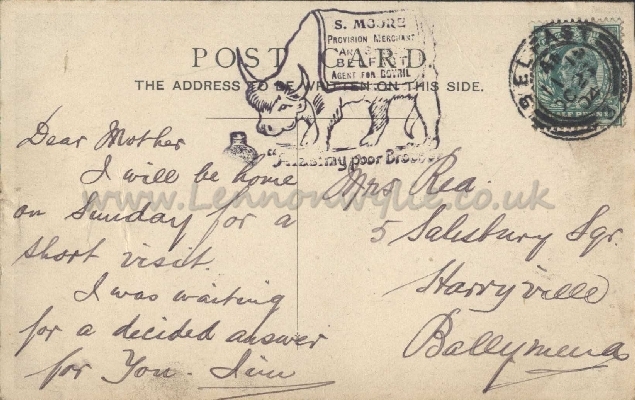 S. MOORE
PROVISION MERCHANT
BELFAST
AGENT FOR BOVRIL
POST CARD.
THE ADDRESS TO BE WRITTEN ON THIS SIDE.
"Alas! my poor Brother"
BELFAST
OC
04
www.Lennonwylie.co.uk
Dear Mother
I will be home
on Sunday for a
short visit.
I was waiting
for a decided answer
for You. Jim
Mrs Rea
5 Salesbury Sqr.
Harryville
Ballymena